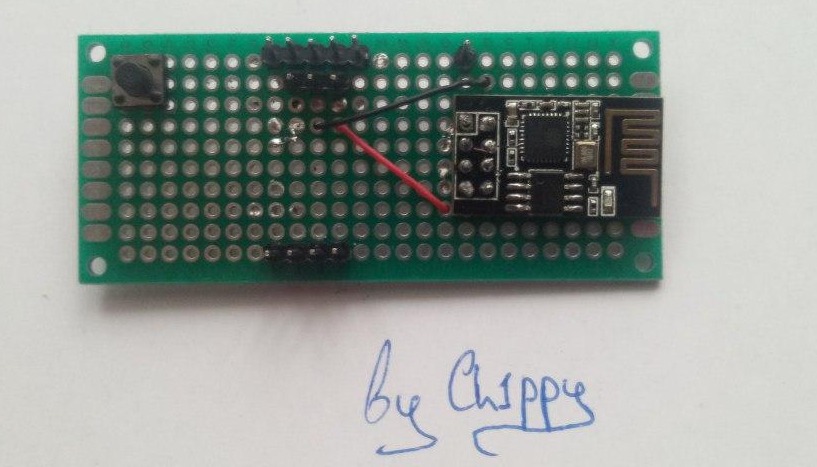 By Ch1ppy